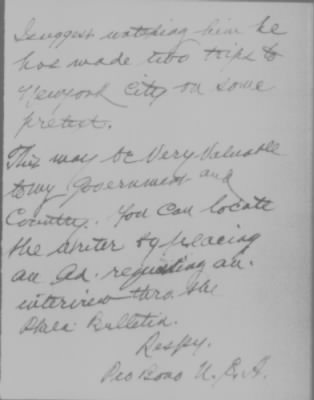 I suggest watching him he
has made two trips to
Newyork City on some
pretext.
This may be Very Valuable
to my Government and
Country. You can locate
the writer by placing
an Ad. requesting an
interview thro the
Phila Bulletin.
Respy.
Pro Bono U.S.A.